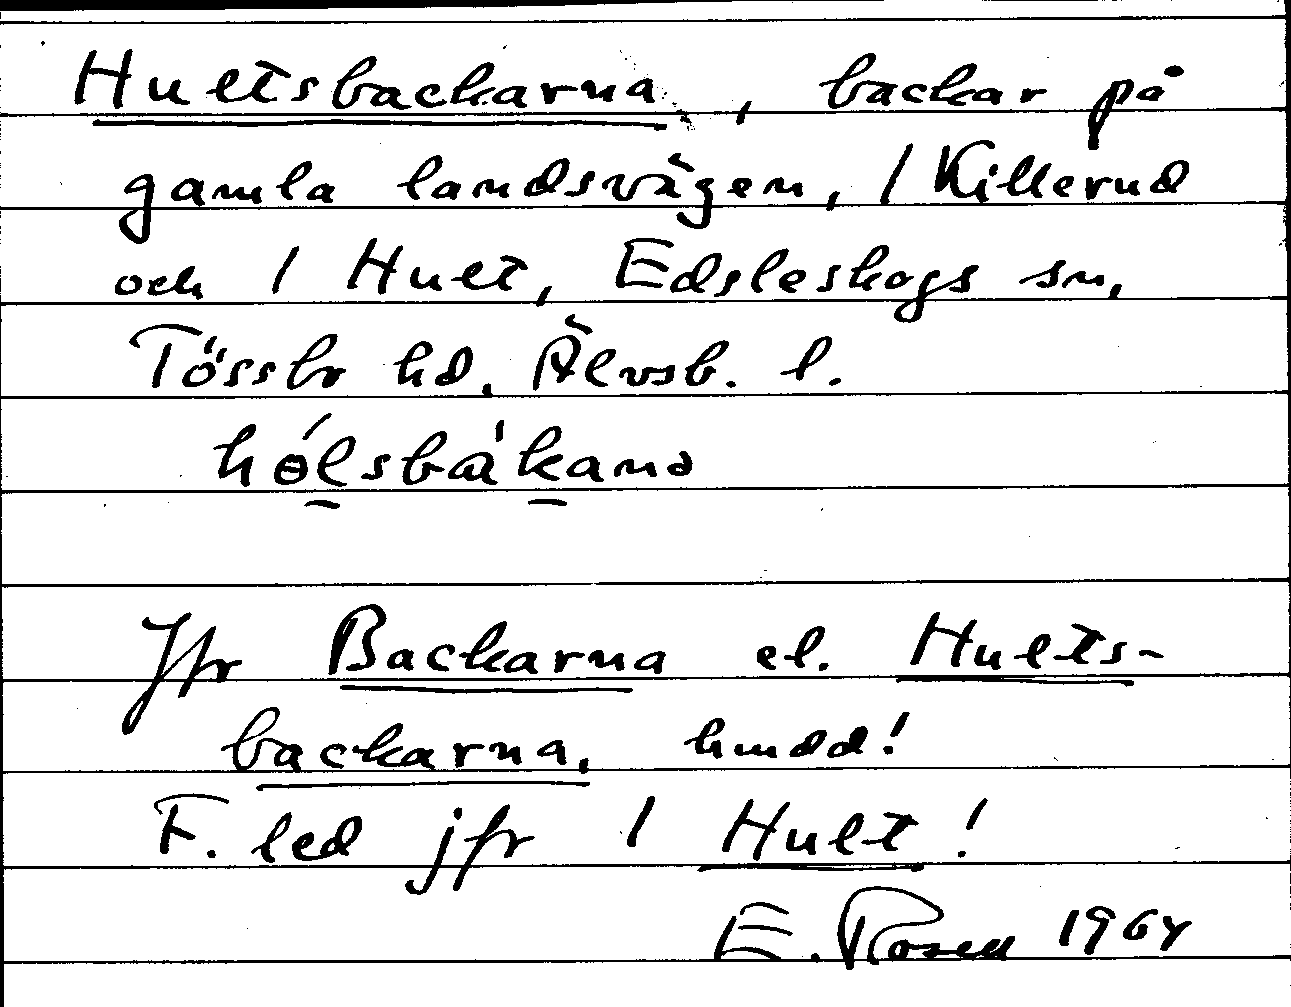 Hultsbackarna, backar på
gamla landsvägen, / Killerud
och / Hult, Edsleskogs sn,
Tössbo hd. Älvsb. l.
hɵ́lsbàkanə
Jfr Backarna el. Hults-
backarna, hmdd!
F. led jfr / Hult!
E. Rosell 1964